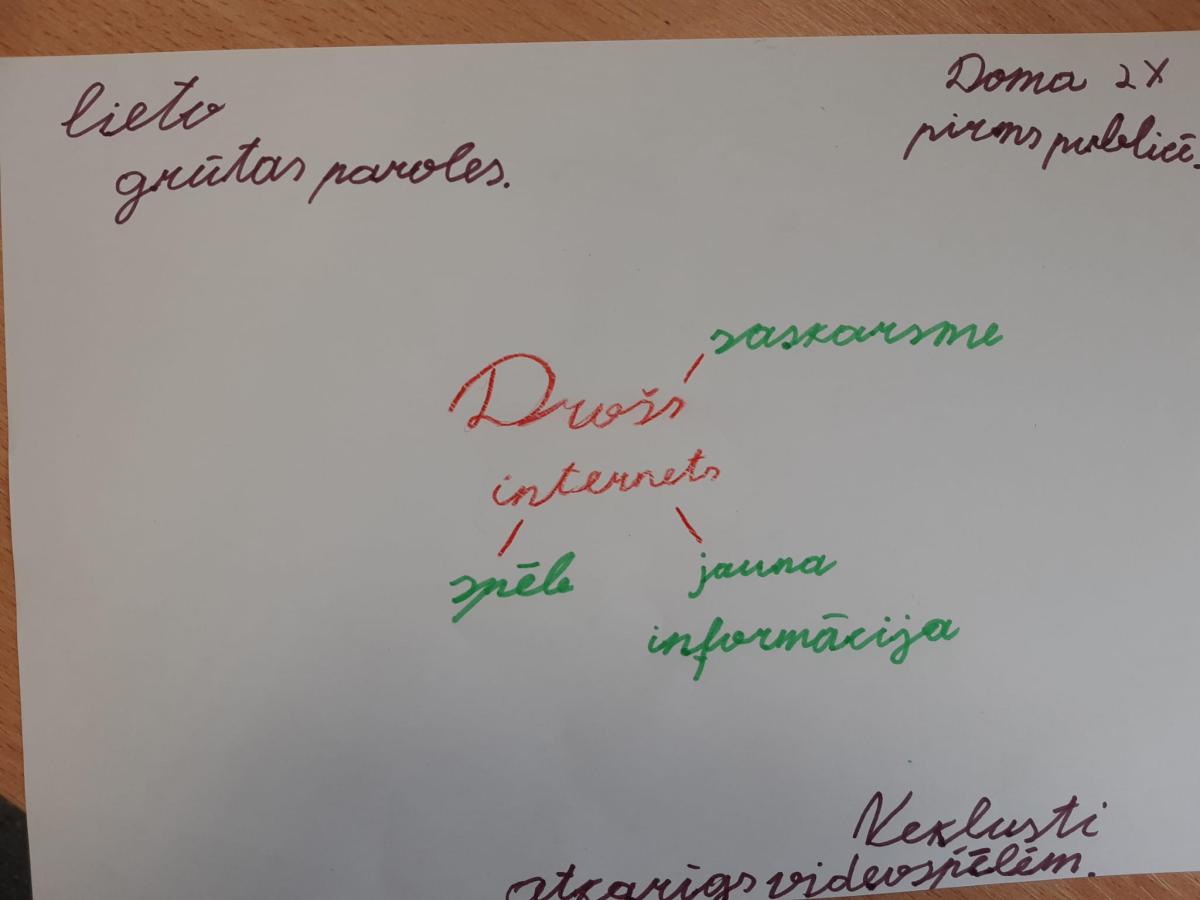 lieto
grūtas paroles.
Doma 2X
pirms publicē
saskarsme
Drošs
internets
spēle
jauna
informācija
Nekļusti
atkarīgs videospēlēm.